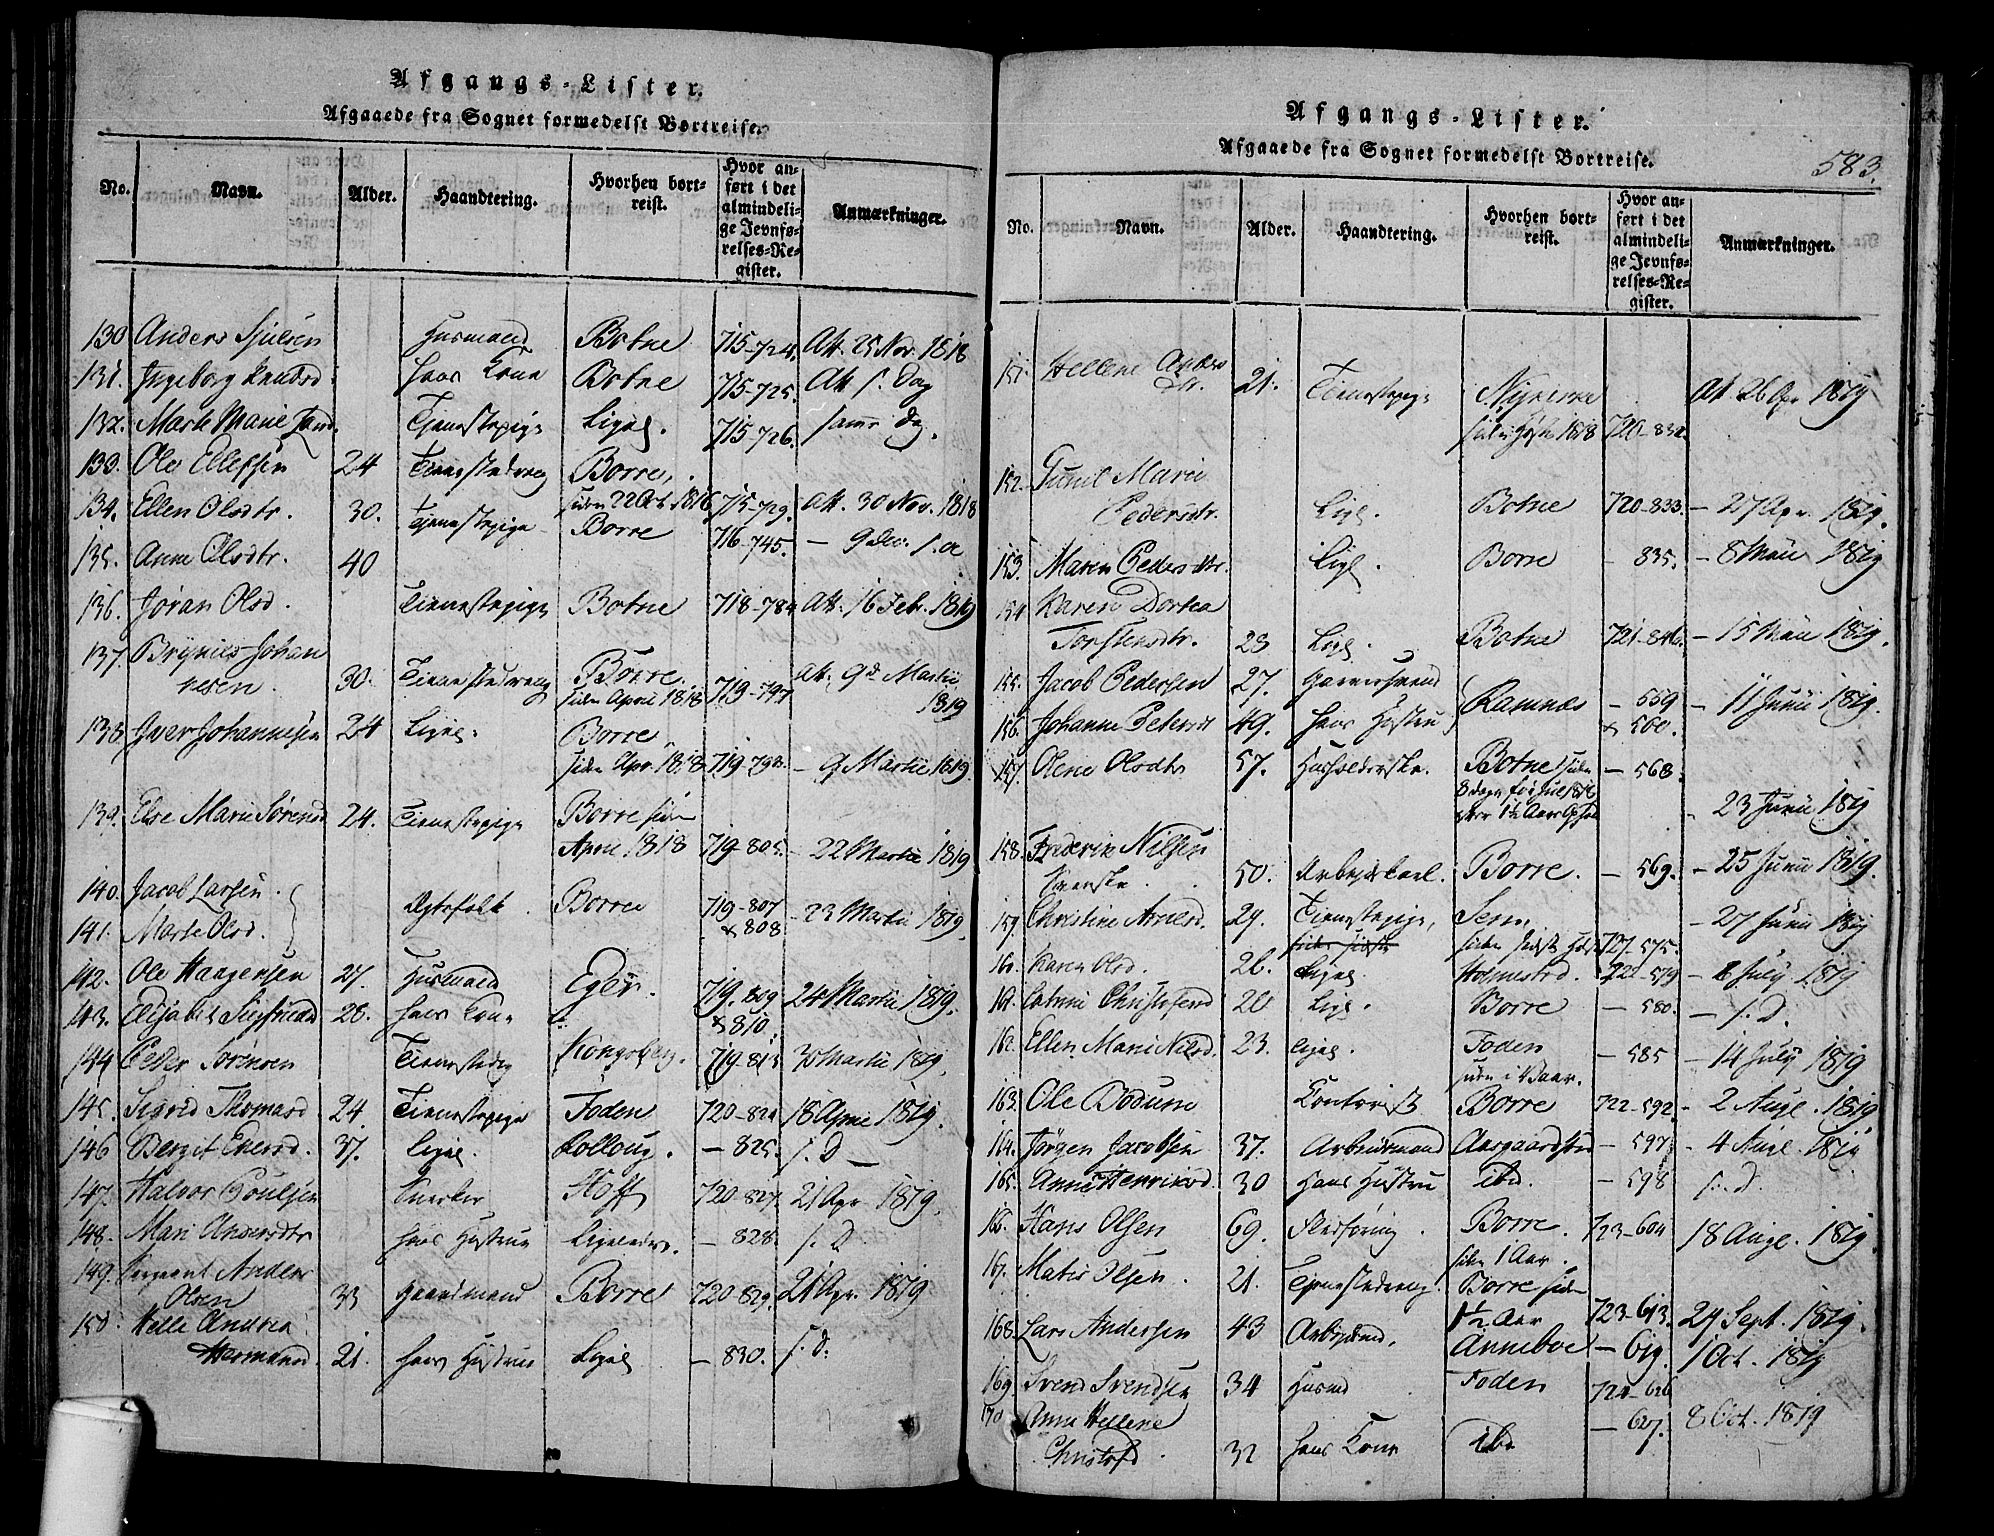 Afgangs-Lister.
Afgaaede fra Sognet formedelst Bortreise.
No. Navn. Alder. Haandtering. Hvorhen bortreist. Hvor anført i det almindelige Jevnførelses-Register. Anmærkninger.
130 Anders Husmand Botne 715-724. Att. 25 Nov. 1818
131. Ingeborg Knudsd. hans Kone Botne 715-725. Att. s. Dag
132. Marte Marie Tienestepige Ligel. 715-726. samme Dag.
133. Ole Ellefsen 24 Tienestedreng Borre,
siden 22 Oct. 1816 715-729. Att. 30 Nov. 1818
134. Ellen Olsdtr. 30. Tjenestepige Borre 716-745. — 9 Dec. s. A
135. Anne Olsdtr. 40
136. Joran Olsd. Tienestepige Botne 718-784 Att. 16 Febr. 1819
137. Johan
nesen. 30. Tienestedreng Borre.
siden April 1818 719-797 Att. 9de Martii
1819
138 Iver Johannesen 24 Ligel. Borre,
siden Apr. 1818 719-798. — 9 Martii 1819
139. Else Marie Sørensd 24. Tienestepige Borre siden
April 1818 719-805. — 22 Martii 1819
140. Jacob Larsen. Ægtefolk. Borre 719-807
141. Marte Olsd. & 808 — 23 Martii 1819.
142. Ole Haagensen 27. Husmand Eger. 719-809 24 Martii 1819.
143. Elisabet 28. hans Kone & 810.
144 Peder Sørensen Kongsberg. 719-813 30 Martii 1819.
145. Sigrid Thomasd 24. Tienestepige Foden 720-824 18 April 1819.
146 Bergit 37. Ligel. — 825. s. D —
147. Halvor Poulsen Snerker Hoff 720-827. 21 Apr. 1819.
148. Mari Andersdtr hans Hustrue — 828. s. D.
149. Sergeant Anders
Olsen 33 Gaardmand Borre 720-829. 21 Apr. 1819
150. Helle Andrea
Hermansd. 21. hans Hustrue Ligel — 830. s. D.
Afgangs-Lister.
Afgaaede fra Sognet formedelst Bortreise.
583.
No. Navn. Alder. Haandtering. Hvorhen bortreist. Hvor anført i det almindelige Jevnførelses-Register. Anmærkninger.
151. Hellene Anders
dtr. 21. Tienestepige Nykirke Att. 26 Apr. 1819
siden Høst 1818 720-832.
152. Gunil Marie
Pedersdtr. Ligel. Botne 720-833. — 27 Apr. 1819.
153. Maren Pedersdtr. Ligl. Borre — 835. — 8 Maii 1819
154 Karen Dortea
Torstensdtr. 28 Ligl. Botne 721-846. — 15 Maii 1819.
155. Jacob Pedersen 27. Ramnæs — 559 — 11 Junii 1819.
156. Johanne Pedersdt 49. hans Hustru & 560.
157. Olene Olsdtr 57. Husholderske. Botne siden — 568.
8 dage før Juul 1816
— 23 Junii 1819
158. Frederik Nilsen
50. Arbejdskarl. Borre. — 569. — 25 Junii 1819.
159. Christine 29. Tienestepige, Sem — 27 Junii 1819
721-575.
160. Karen Olsd. 26. Ligel. Holmestrd. 722-579 — 8 July 1819
161. Catrine 20 Ligl. Borre — 580. — s. D.
162. Ellen Marie Nilsd. 23. Ligel. Foden — 585 — 14 July 1819
163. Ole Bodum Contorist Borre 722-592. — 2 Aug. 1819.
164. Jørgen Jacobsen 37. Arbeidsmand — 597. — 4 Aug. 1819
165. Anne Henriksd. 30 Hans Hustru ibd. — 598 s. D.
166. Hans Olsen 69. Borre. 723-604 18 Aug. 1819.
siden 1 Aar.
167. Olsen. 21. Tjenestedreng. Borre siden
1½ Aar 723-613. 29 Sept. 1819.
168. Lars Andersen 43 Anneboe — 619. 1 Oct. 1819
169. Svend Svendsen 34 Husmd Foden 724-626
170 Anne Hellene — 627. 8 Oct. 1819
32 hans Kone ibd